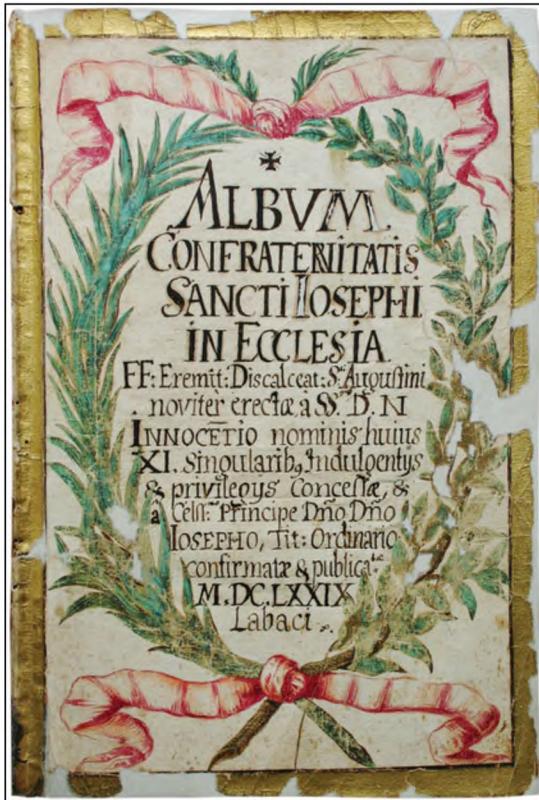 ALBVM
CONFRATERNITATIS
SANCTI IOSEPHI
IN ECCLESIA
FF: Eremit: Discalceat: S.ti Augustini
noviter erectæ, à SS. D. N
INNOCE͞TIO nominis huius
XI. Singularibq Indulgentijs
& privilegijs Concessæ, &
à Celss: Principe Dño Dño
IOSEPHO, Tit: Ordinario
confirmatæ & publicatæ
M.DC.LXXIX
Labaci